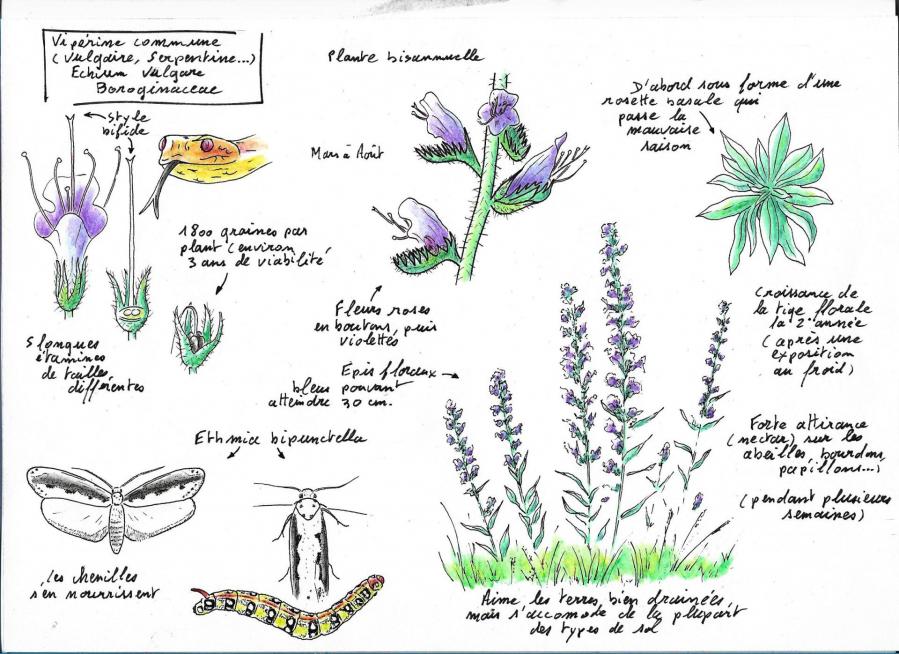 Vipérine commune
(Vulgaire, Serpentine...)
Echium Vulgare
Boroginaceae
Plante bisannuelle
D'abord sous forme d'une
rosette basale qui
passe la
mauvaise
saison
style
bifide
Mars à Août
1800 graines par
plant (environ
3 ans de viabilité
Fleurs roses
en boutons, puis
violettes
Croissance de
la tige florale
la 2e année
(après une
exposition
au froid)
5 longues
étamines
de tailles
différentes
Epis floraux
bleus pouvant
atteindre 30 cm.
Forte attirance
(nectar) sur les
abeilles, bourdons,
papillons...)
(pendant plusieurs
semaines)
Ethmia bipunctella
Les chenilles
s'en nourrissent
Aime les terres bien drainées
mais s'accomode de la plupart
des types de sol